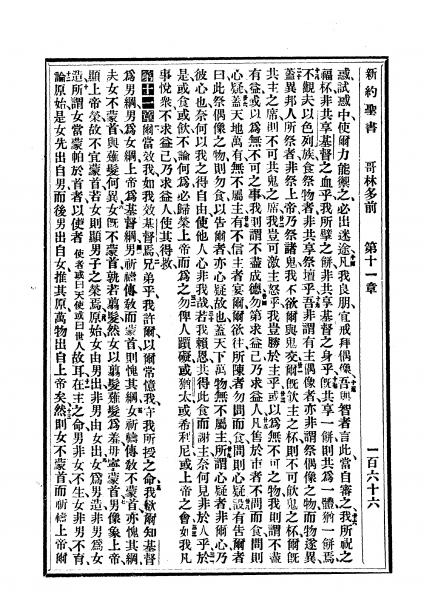 新約聖書 哥林多前 第十一章 一百六十六
惑試惑中使爾力能禦之必出迷途凡我良朋宜戒拜偶像吾與智者言此當自審之我所祝之
福杯非共享基督之血乎我所擘之餅非共享基督之身乎旣共享一餅則共爲一體猶一餅焉
不觀夫以色列族食祭物者非共享祭壇乎吾非謂有主偶像者亦非謂祭偶像之物而物遂異
蓋異邦人所祭者非祭上帝乃祭諸鬼我不欲爾與鬼交爾旣飲主之杯則不可飲鬼之杯爾旣
共主之席則不可共鬼之席我豈可激主怒乎我豈勝於主乎或以爲無不可之物我則謂不盡
有益或以爲無不可之事我則謂不盡成德勿第求益己乃求益人凡售於市者不問而食問則
心疑蓋天地萬有無不屬主有不信主者宴爾爾欲往所陳者勿問而食問則心疑設有告爾者
曰此祭偶像之物則勿食以告爾者心疑故也蓋天下萬物無不屬主所謂心疑者非爾心乃
彼心也奈何以我之得自由使他人心非我哉若我賴恩共得此食而謝主奈何見非於人乎於
是或食或飲不論何爲必歸榮上帝而爲之勿俾人躓礙或猶太或希利尼或上帝之會如我凡
事悅衆不求益己乃求益人使其得救
第十一章 爾當效我如我效基督焉兄弟乎我許爾以爾常憶我守我所授之命我欲爾知基督
爲男綱男爲女綱上帝爲基督綱男祈禱傳敎而蒙首則愧其綱女祈禱傳敎不蒙首亦愧其綱
夫女不蒙首與薙髮何異女旣不蒙首孰若翦髮然女以翦髮薙髮爲羞毋寧蒙首男像象上帝
顯上帝榮故不宜蒙首若女則顯男子之榮焉原始女由男出非男由女出女爲男造非男爲女
造所謂女當蒙帕於首者以使者使者或曰天使或曰世人故耳在主之命男非女不生女非男不育
論原始是女先出自男而後男出自女推其原萬物出自上帝矣然則女不蒙首而祈禱上帝爾